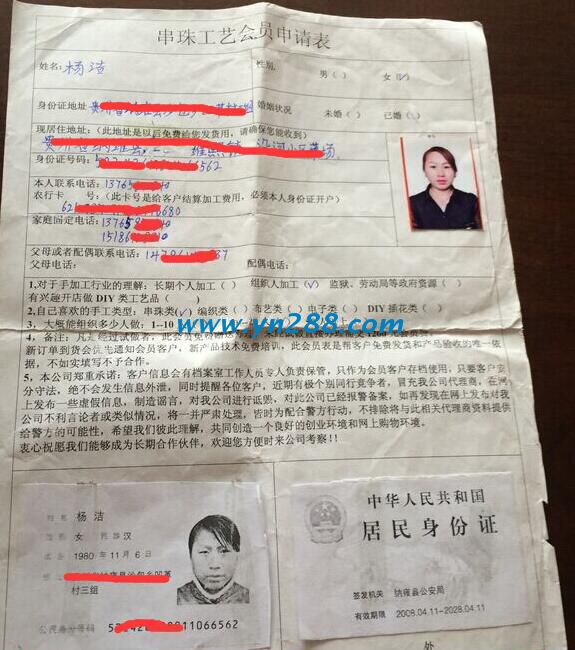 串珠工艺会员申请表
姓名:杨洁 性别: 男( ) 女(√)
身份证地址 婚姻状况 未婚( ) 已婚( )
现居住地址:(此地址是以后免费给您发费用,请确保您能收到)
身份证号码: 6562
本人联系电话:1376
农行卡 号:(此卡号是给客户结算加工费用,必须本人身份证开户)
62 0680
家庭固定电话:13765
15186
父母或者配偶联系电话: 37
父母电话: 配偶电话:
1,对于手加工行业的理解:长期个人加工( ) 组织人加工(√) 监狱、劳动局等政府资源( )
有兴趣开店做 DIY 类工艺品( )
2,自己喜欢的手工类型:串珠类(√)编织类( )布艺类( )电子类( )DIY 插花类( )
3、大概能组织多少人做:1--10
www.yn288.com
4,备注:凡是经过
新订单到货会优先通知会员客户,新产品技术免费培训,此会员表是帮客户免费发货和产品验收的唯一依
据,不如实填写不予合作。
5,本公司郑重承诺:客户信息会有档案室工作人员专人负责保管,只作为会员客户存档使用,只要客户安
分守法,绝不会发生信息外泄,同时提醒各位客户,近期有极个别同行竞争者,冒充我公司代理商,在网
上发布一些虚假信息,制造谣言,对我公司进行诋毁,对此公司已经报警备案,如再发现在网上发布对我
公司不利言论者或类似情况,将一并严肃处理,皆时为配合警方行动,不排除将与此相关代理商资料提供
给警方的可能性,希望我们彼此理解,共同创造一个良好的创业环境和网上购物环境。
衷心祝愿我们能够成为长期合作伙伴,欢迎您方便时来公司考察!!
姓名 杨洁
性别 女 民族 汉
1980 年 11 月 6 日
村三组
公民身份号码 11066562
中华人民共和国
居民身份证
签发机关 纳雍县公安局
有效期限 2008.04.11-2028.04.11
处